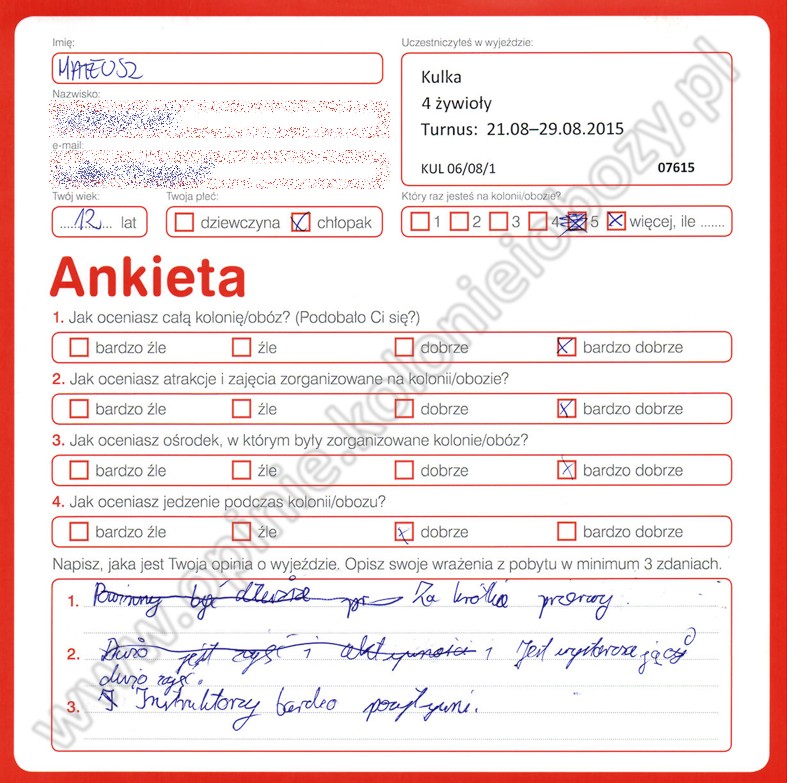 Imię:
MATEUSZ
Nazwisko:
e-mail:
Twój wiek:
....12.... lat
Twoja płeć:
dziewczyna chłopak
Uczestniczyłeś w wyjeździe:
Kulka
4 żywioły
Turnus: 21.08–29.08.2015
KUL 06/08/1 07615
Który raz jesteś na kolonii/obozie?
1 2 3 4 5 więcej, ile .......
Ankieta
1. Jak oceniasz całą kolonię/obóz? (Podobało Ci się?)
bardzo źle źle dobrze bardzo dobrze
2. Jak oceniasz atrakcje i zajęcia zorganizowane na kolonii/obozie?
bardzo źle źle dobrze bardzo dobrze
3. Jak oceniasz ośrodek, w którym były zorganizowane kolonie/obóz?
bardzo źle źle dobrze bardzo dobrze
4. Jak oceniasz jedzenie podczas kolonii/obozu?
bardzo źle źle dobrze bardzo dobrze
Napisz, jaka jest Twoja opinia o wyjeździe. Opisz swoje wrażenia z pobytu w minimum 3 zdaniach.
1. Powinny być dłuższe pr Za krótkie przerwy.
2. Dużo jest zajęć i aktywności Jest wystarczająco
dużo zajęć.
3. Instruktorzy bardzo pozytywni.
www.opinie.kolonieiobozy.pl